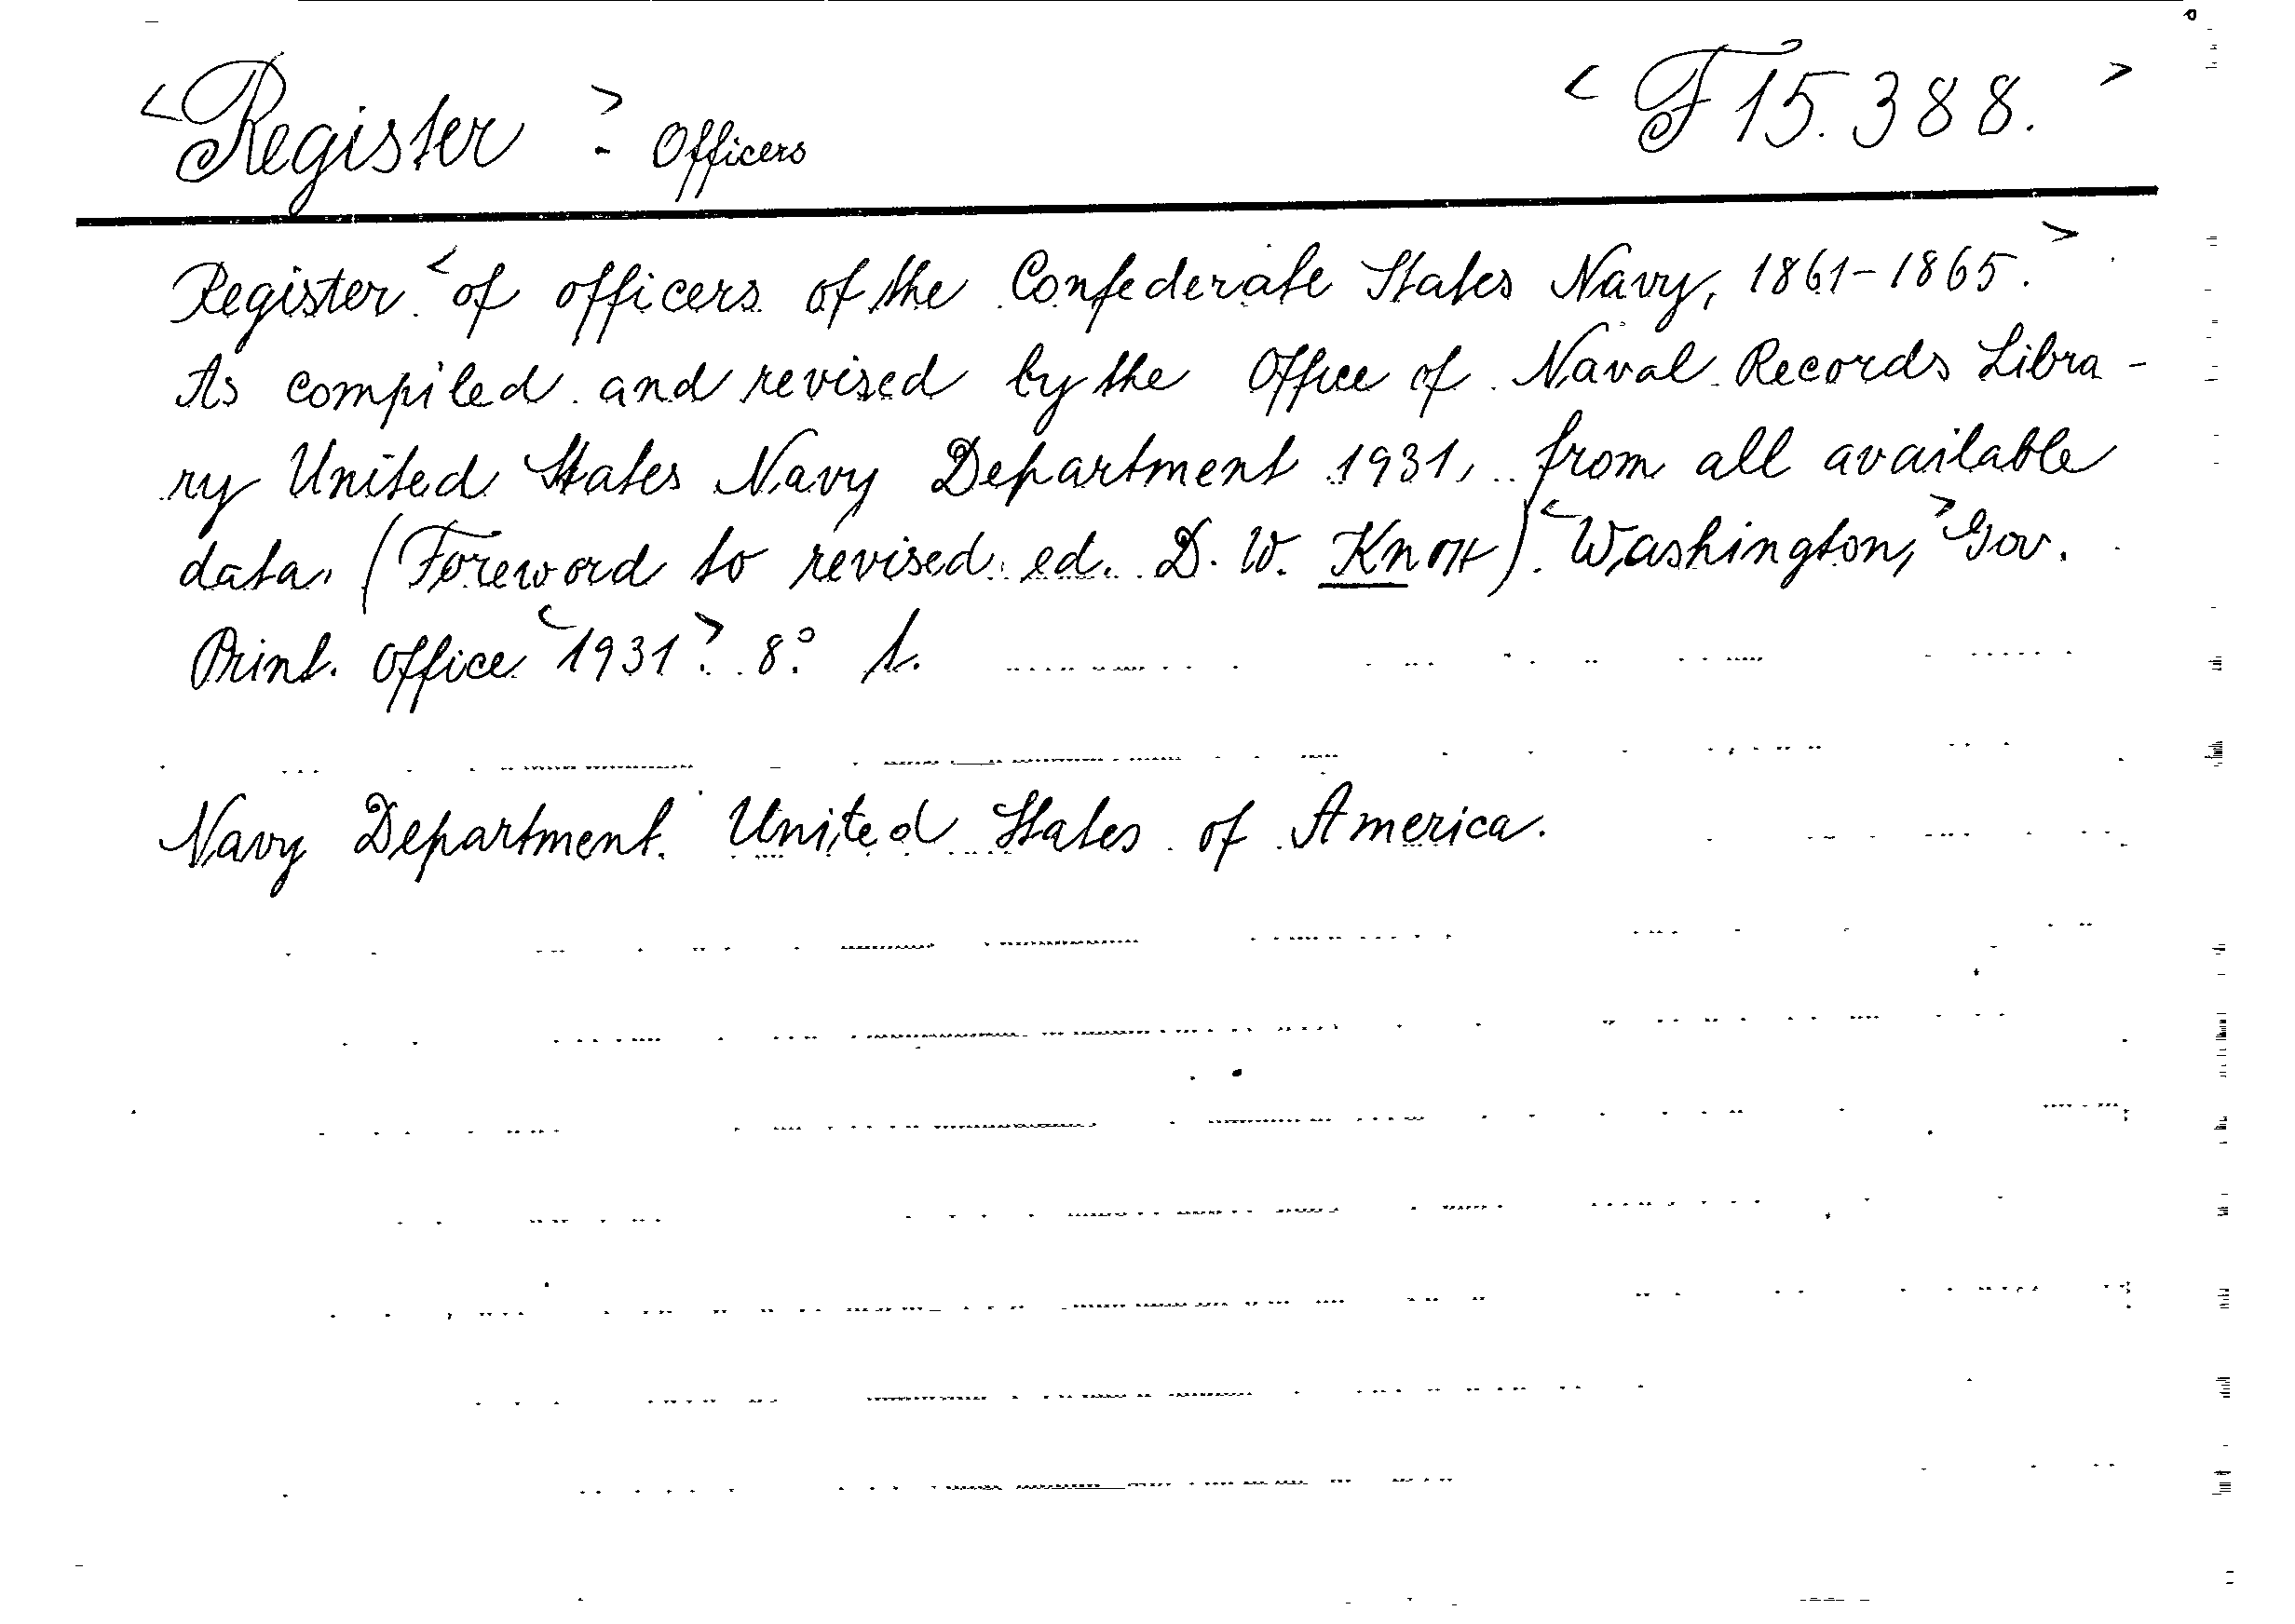 <Register> - Officers <F 15.388.>
Register <of officers of the Confederate States Navy, 1861-1865.>
As compiled and revised by the Office of Naval Records Libra-
ry United States Navy Department 1931, from all available
data. (Foreword to revised ed. D. W. Knox). <Washington,> Gov.
Print. Office <1931>. 8°. 1.
Navy Department. United States of America.